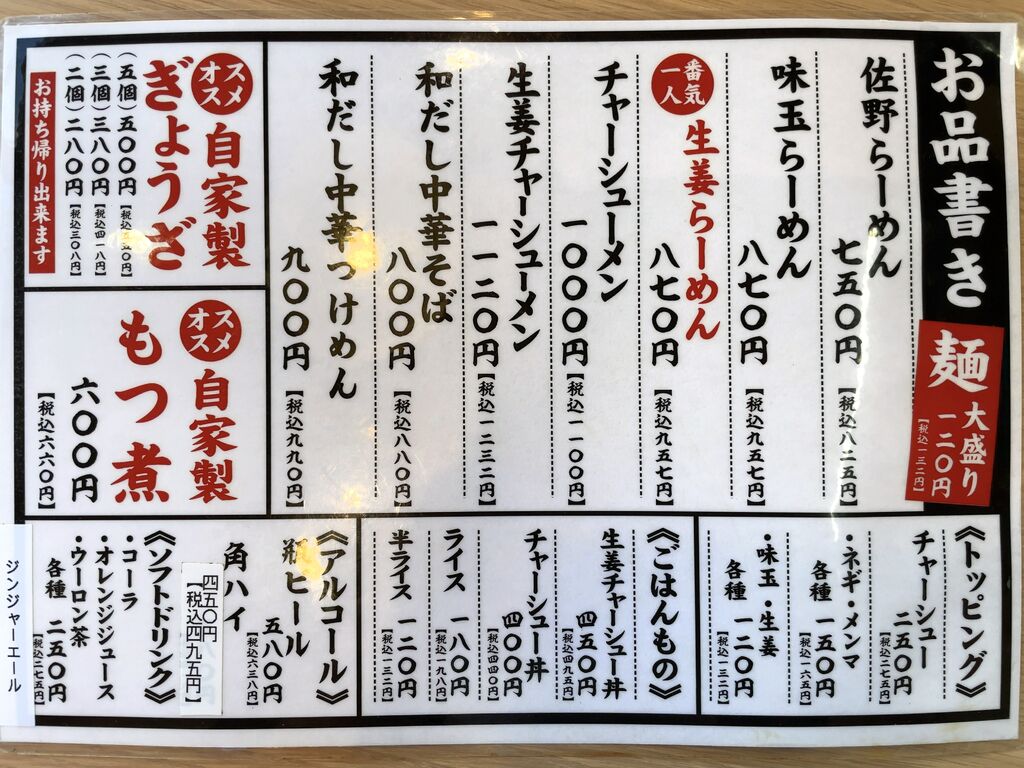 お品書き
麺大盛り
一二〇円
【税込一三二円】
佐野らーめん
七五〇円【税込八二五円】
味玉らーめん
八七〇円【税込九五七円】
一番人気
生姜らーめん
八七〇円【税込九五七円】
チャーシューメン
一〇〇〇円【税込一一〇〇円】
生姜チャーシューメン
一一二〇円【税込一二三二円】
和だし中華そば
八〇〇円【税込八八〇円】
和だし中華つけめん
九〇〇円【税込九九〇円】
オススメ
自家製
ぎょうざ
(五個)五〇〇円【税込五五〇円】
(三個)三八〇円【税込四一八円】
(二個)二八〇円【税込三〇八円】
お持ち帰り出来ます
オススメ
自家製
もつ煮
六〇〇円
【税込六六〇円】
《トッピング》
チャーシュー
二五〇円
【税込二七五円】
・ネギ・メンマ
各種 一五〇円
【税込一六五円】
・味玉・生姜
各種 一二〇円
【税込一三二円】
《ごはんもの》
生姜チャーシュー丼
四五〇円
【税込四九五円】
チャーシュー丼
四〇〇円
【税込四四〇円】
ライス 一八〇円
【税込一九八円】
半ライス 一二〇円
【税込一三二円】
《アルコール》
瓶ビール
五八〇円
【税込六三八円】
角ハイ
四五〇円
【税込四九五円】
《ソフトドリンク》
・コーラ
・オレンジジュース
・ウーロン茶
各種 二五〇円
【税込二七五円】
ジンジャーエール